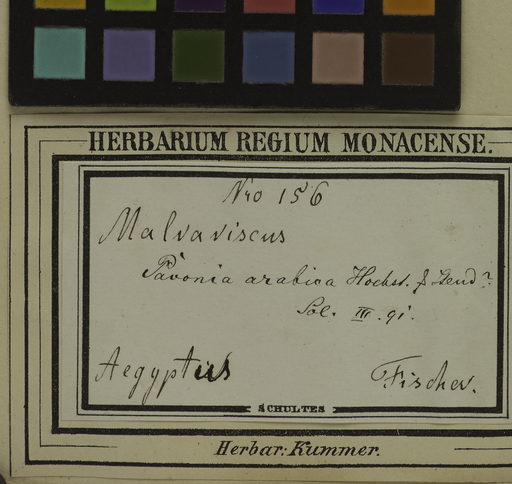 HERBARIUM REGIUM MONACENSE.
Nro 156
Malvaviscus
Pavonia arabica Hochst. & Steud?
Sol. III. 91.
Aegyptus
Fischer.
SCHULTES
Herbar: Kummer.